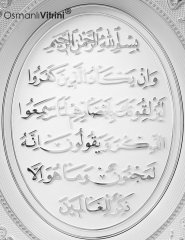 OsmanlıVitrini®
بسم الله الرحمن الرحيم
وإن يكاد الذين كفروا
ليزلقونك بأبصارهم لما سمعوا
الذكر ويقولون إنه
لمجنون وما هو إلا
ذكر للعالمين